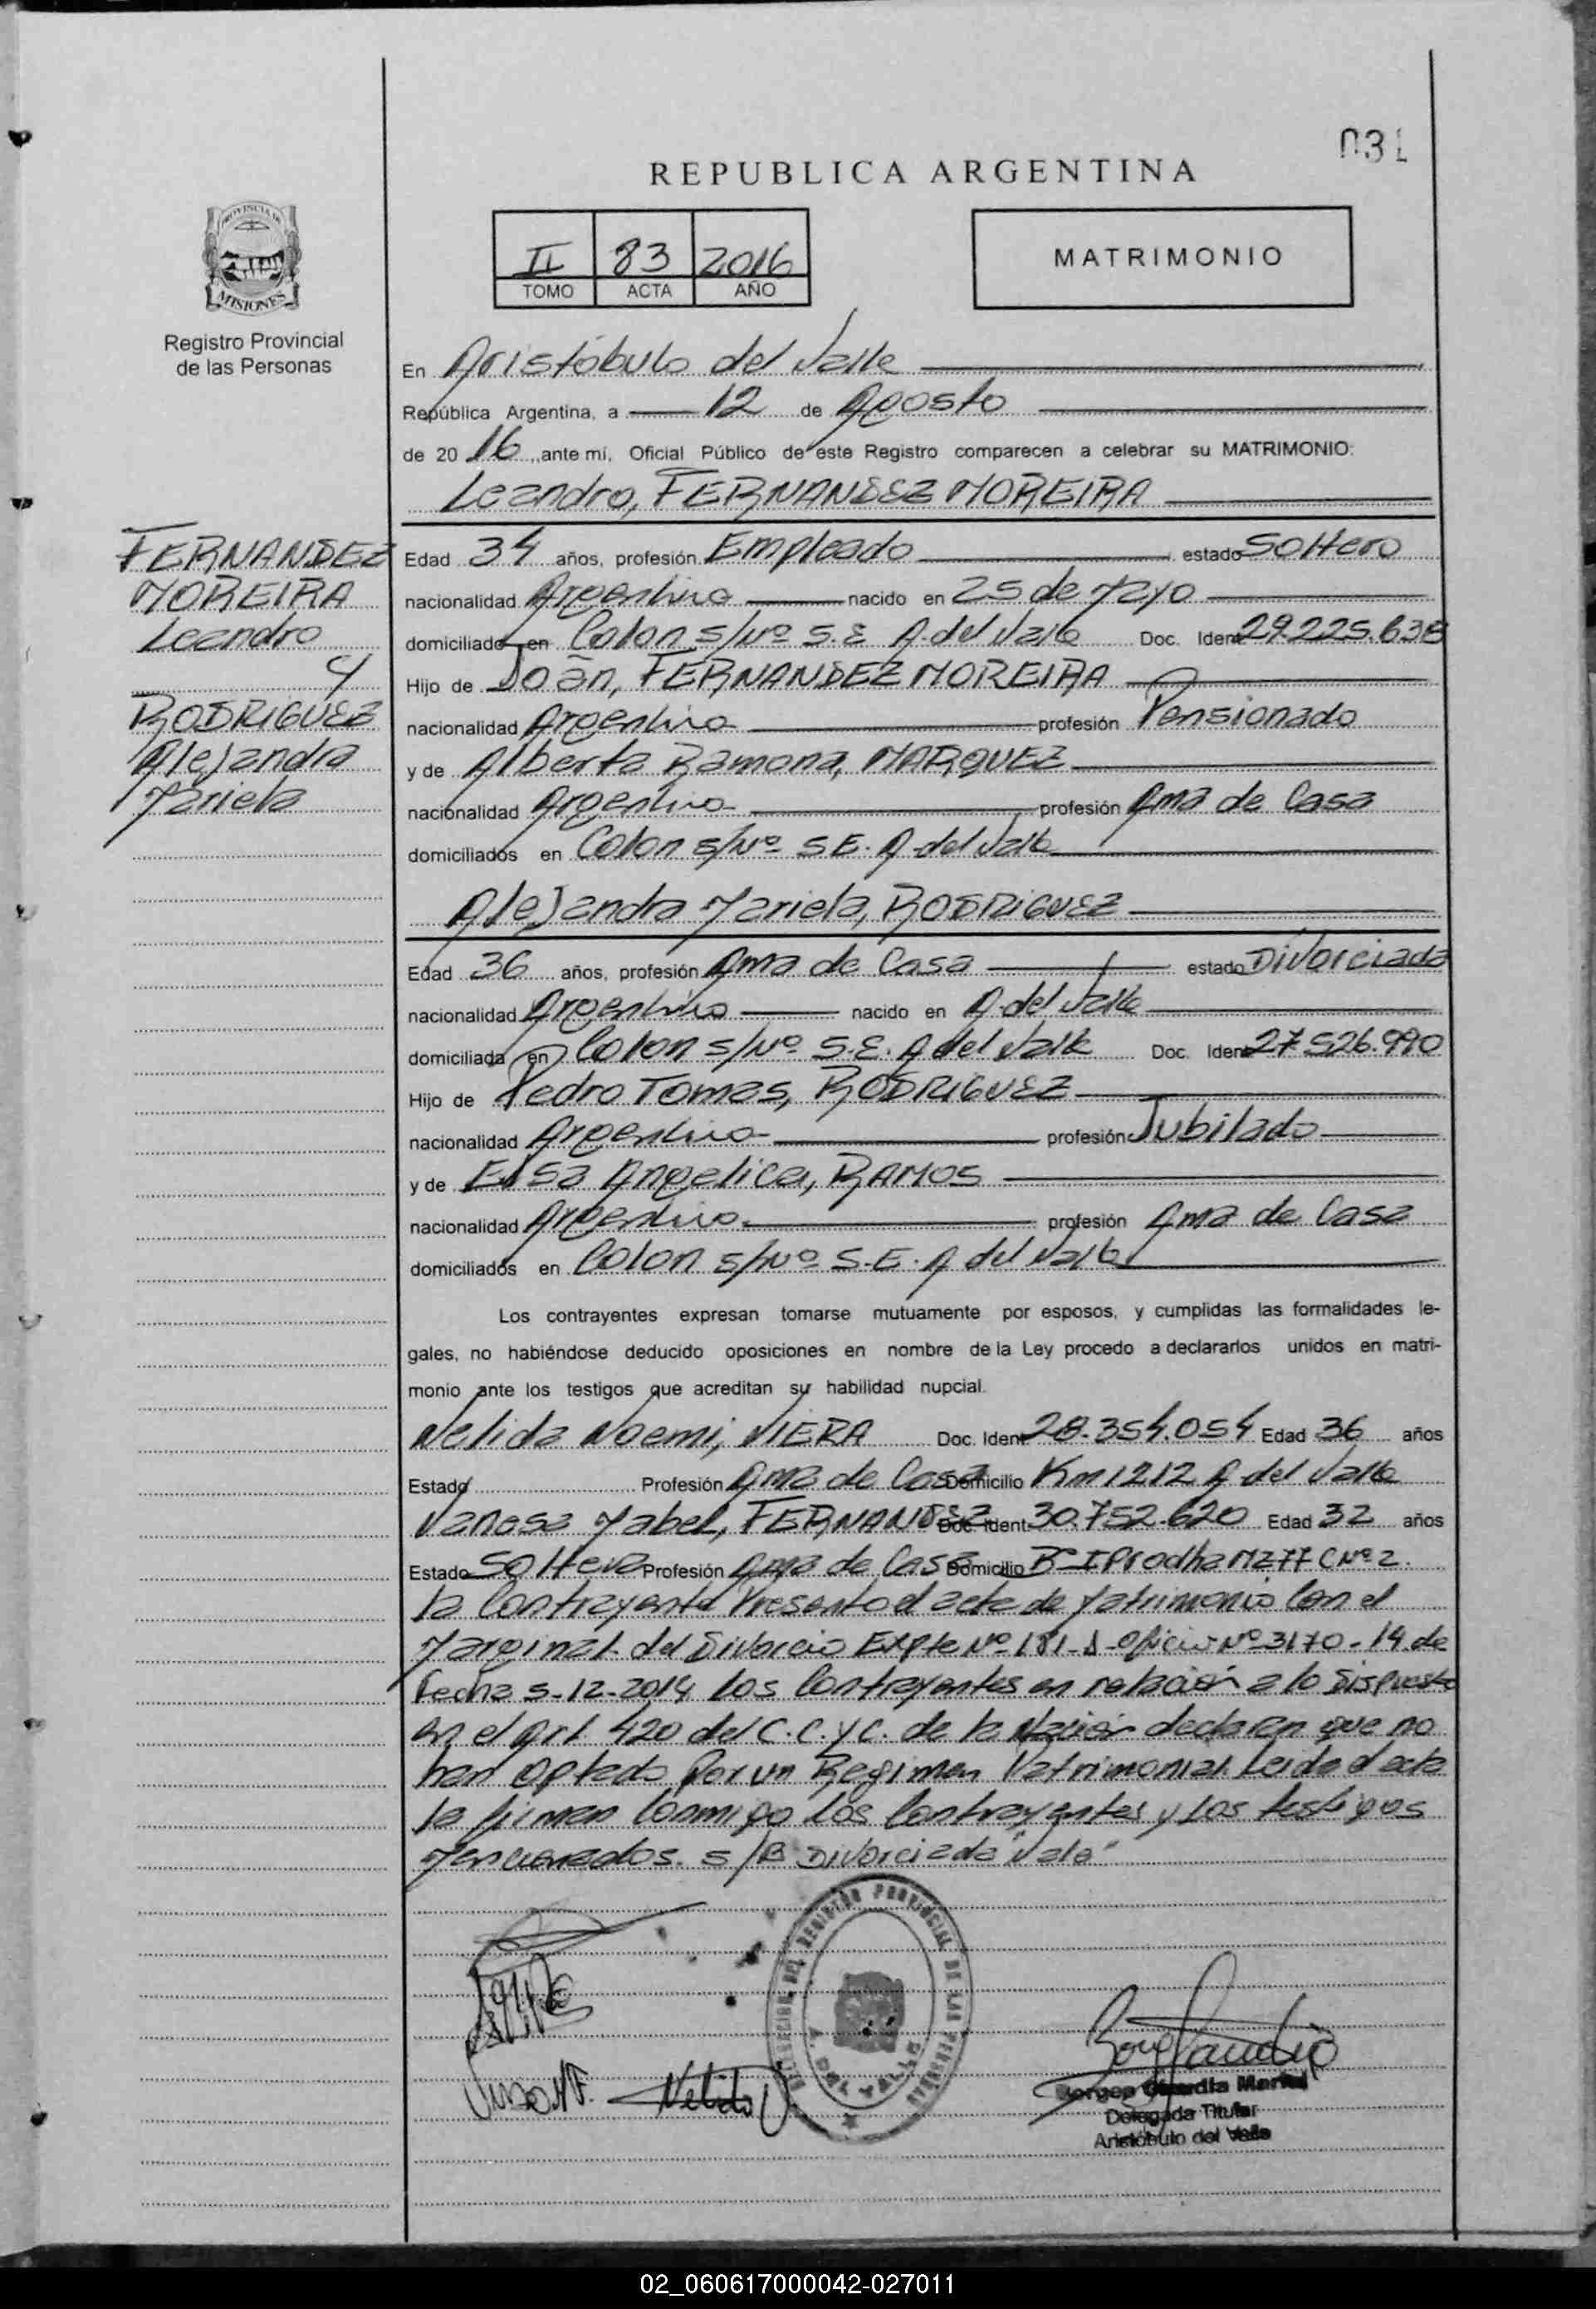 031
REPUBLICA ARGENTINA
PROVINCIA DE
MISIONES
Registro Provincial
de las Personas
II 83 2016
TOMO ACTA AÑO
MATRIMONIO
En Aristóbulo del Valle
República Argentina, a 12 de Agosto
de 2016, ante mí, Oficial Público de este Registro comparecen a celebrar su MATRIMONIO:
Leandro, FERNANDEZ MOREIRA
FERNANDEZ
MOREIRA
Leandro
y
RODRIGUEZ
Alejandra
Mariela
Edad 34 años, profesión Empleado estado Soltero
nacionalidad Argentina nacido en 25 de Mayo
domiciliado en Colon s/Nº S.E A. del Valle Doc. Ident 29.225.638
Hijo de Joãn, FERNANDEZ MOREIRA
nacionalidad Argentina profesión Pensionado
y de Alberta Ramona, MARQUEZ
nacionalidad Argentina profesión Ama de Casa
domiciliados en Colon s/Nº S.E. A del Valle
Alejandra Mariela, RODRIGUEZ
Edad 36 años, profesión Ama de Casa estado Divorciada
nacionalidad Argentina nacido en A. del Valle
domiciliada en Colon s/Nº S.E. A del Valle Doc. Ident 27.526.990
Hijo de Pedro Tomas, RODRIGUEZ
nacionalidad Argentina profesión Jubilado
y de Elsa Angelica, RAMOS
nacionalidad Argentina profesión Ama de Casa
domiciliados en Colon s/Nº S.E. A del Valle
Los contrayentes expresan tomarse mutuamente por esposos, y cumplidas las formalidades le-
gales, no habiéndose deducido oposiciones en nombre de la Ley procedo a declararlos unidos en matri-
monio ante los testigos que acreditan su habilidad nupcial.
Nelida Noemi, VIERA Doc. Ident 28.354.054 Edad 36 años
Estado Profesión Ama de Casa Domicilio Km 1212 A del Valle
Vanesa Mabel, FERNANDEZ Doc. Ident 30.752.620 Edad 32 años
Estado Soltera Profesión Ama de Casa Domicilio Bº Iprodha MZ 77 C Nº 2.
la Contrayente Presento el acta de Matrimonio Con el
Marginal del Divorcio Expte Nº 181-D-Oficio Nº 3170-14 de
fecha 5-12-2014 Los Contrayentes en relación a lo Dispuesto
en el Art. 420 del C.C. y C. de la Nación declaran que no
han optado Por un Regimen Patrimonial. Leida el acta
la firman Conmigo los Contrayentes y los testigos
Mencionados. s/B Divorciada "Vale"
DELEGACION DEL REGISTRO PROVINCIAL DE LAS PERSONAS
A. DEL VALLE
Nelida V
Borges Claudia Mariel
Delegada Titular
Aristóbulo del Valle
02_060617000042-027011